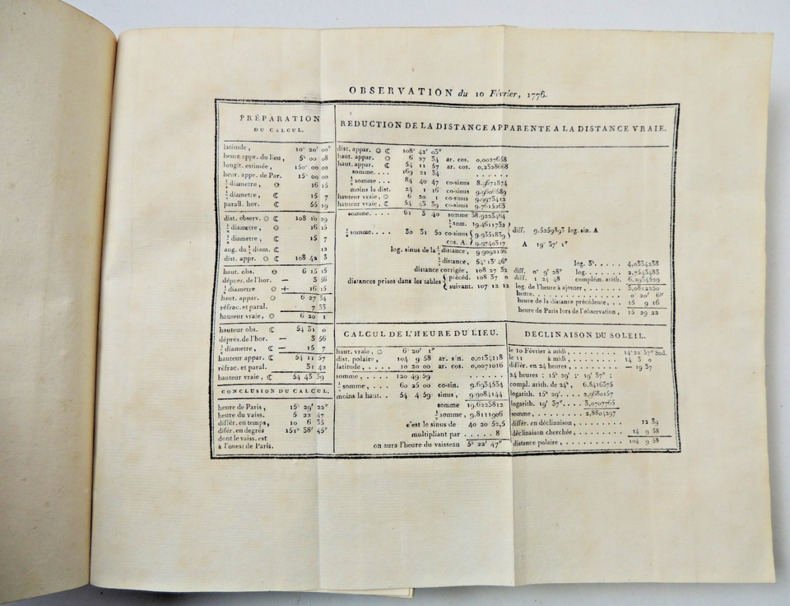 OBSERVATION du 10 Février, 1776.
PRÉPARATION
DU CALCUL.
latitude, 10° 20' 00"
heure appr. du lieu, 5h 00 08
longit. estimée, 150° 00 00
heur. appr. de Par. 15h 00 00
½ diametre, ☉ 16 15
½ diametre, ☾ 15 7
parall. hor. ☾ 55 19
dist. observ. ☉ ☾ 108 10 29
½ diametre, ☉ 16 15
½ diametre, ☾ 15 7
aug. du ½ diam. 12
dist. appr. ☉ ☾ 108 42 3
haut. obs. ☉ 6 15 15
dépres. de l'hor. — 3 56
½ diametre ☉ + 16 15
haut. appar. ☉ 6 27 34
réfrac. et paral. 7 33
hauteur vraie, ☉ 6 20 1
hauteur obs. ☾ 54 31 0
dépres. de l'hor. — 3 56
½ diametre, ☾ — 15 7
hauteur appar. ☾ 54 11 57
réfrac. et paral. 31 42
hauteur vraie, ☾ 54 43 39
CONCLUSION DU CALCUL.
heure de Paris, 15h 29' 22"
heure du vaiss. 5 22 47
différ. en temps, 10 6 35
différ. en degrés 151° 38' 45"
dont le vaiss. est
à l'ouest de Paris.
REDUCTION DE LA DISTANCE APPARENTE A LA DISTANCE VRAIE.
dist. appar. ☉ ☾ 108° 42' 03"
haut. appar. ☉ 6 27 34 ar. cos. 0,0027658
haut. appar. ☾ 54 11 57 ar. cos. 0,2328668
somme.... 169 21 34
½ somme... 84 40 47 co-sinus 8,9671874
moins la dist. 24 1 16 co-sinus 9,9606689
hauteur vraie ☉ 6 20 1 co-sinus 9,9973412
hauteur vraie, ☾ 54 43 39 co-sinus
somme.... 61 3 40 somme 38,9223464
½ som. 19,4611732
½ somme.... 30 31 50 co-sinus 9,9351839
diff. 9,5259893 log. sin. A
cos. A. 9,9740317
A 19° 37' 1"
log. sinus de la ½ distance, 9,9092156
½ distance, 54° 13' 46"
distance corrigée, 108 27 32
distances prises dans les tables précéd. 108 37 0
suivant. 107 12 12
log. 3h. 4,0334238
diff. 0° 9' 28" log. 2,7543483
diff. 1 24 48 complém. arith. 6,2934529
log. de l'heure à ajouter, 3,0812250
heure, 0 20' 6"
heure de la distance précédente, 15 9 16
heure de Paris lors de l'observation, 15 29 22
CALCUL DE L'HEURE DU LIEU.
haut. vraie, ☉ 6° 20' 1"
dist. polaire, 104 9 58 ar. sin. 0,0134118
latitude, 10 20 00 ar. cos. 0,0071016
somme, 120 49 59
½ somme, 60 25 00 co-sin. 9,6934534
moins la haut. 54 4 59 sinus, 9,9084144
somme 19,6223812
½ somme, 9,8111906
c'est le sinus de 40 20 52,5
multipliant par 8
on aura l'heure du vaisseau 5h 22' 47"
DECLINAISON DU SOLEIL.
le 10 Février à midi, 14° 22' 37" aud.
le 11 à midi, 14 3 0
différ. en 24 heures, — 19 37
24 heures : 15h 29' :: 19' 37" :
compl. arith. de 24h, 6,8416375
logarith. 15h 29', 2,9680157
logarith. 19' 37", 3,0707765
somme, 2,8804297
différ. en déclinaison, 12 39
déclinaison cherchée, 14 9 58
distance polaire, 104 9 58